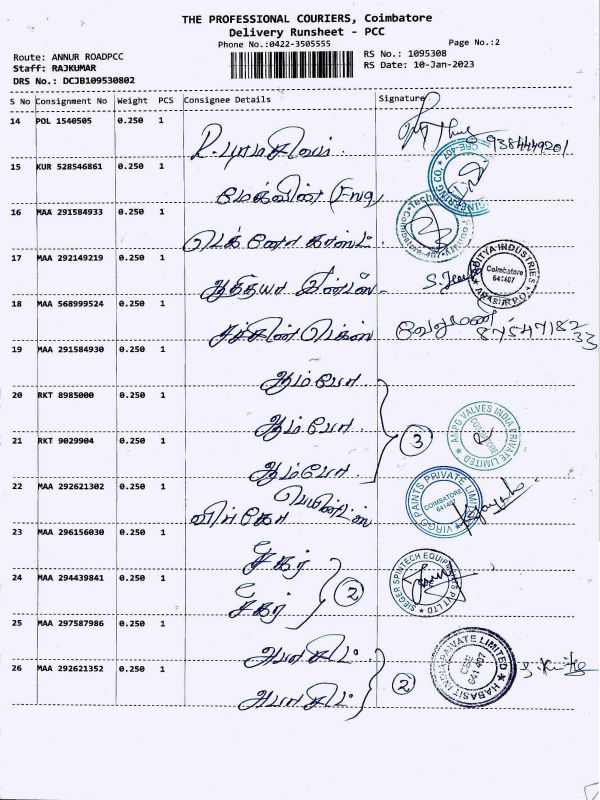 THE PROFESSIONAL COURIERS, Coimbatore
Delivery Runsheet - PCC
Phone No.:0422-3505555
Page No.:2
Route: ANNUR ROADPCC
RS No.: 1095308
Staff: RAJKUMAR
RS Date: 10-Jan-2023
DRS No.: DCJB109530802
S No Consignment No Weight PCS Consignee Details Signature
14 POL 1540505 0.250 1
9384449201
15 KUR 528546861 0.250 1
(Eng)
16 MAA 291584933 0.250 1
டெக்னோ காஸ்ட்
17 MAA 292149219 0.250 1
ஆதித்யா
ADITYA INDUSTRIES
Coimbatore
641407
ARASUR P.O.
18 MAA 568999524 0.250 1
வேலுமணி
8754718233
19 MAA 291584930 0.250 1
ஆம்போ
20 RKT 8985000 0.250 1
ஆம்போ
3
AMPO VALVES INDIA PRIVATE LIMITED
COIMBATORE
21 RKT 9029904 0.250 1
ஆம்போ
22 MAA 292621302 0.250 1
விர்கோ பெயின்ட்ஸ்
VIRGO PAINTS PRIVATE LIMITED
COIMBATORE
641407
23 MAA 296156030 0.250 1
சீகர்
24 MAA 294439841 0.250 1
சீகர்
2
SIEGER SPINTECH EQUIPMENTS PVT LTD
25 MAA 297587986 0.250 1
அபாசிட்
26 MAA 292621352 0.250 1
அபாசிட்
2
HABASIT INDIA PRIVATE LIMITED
CBE
641 407